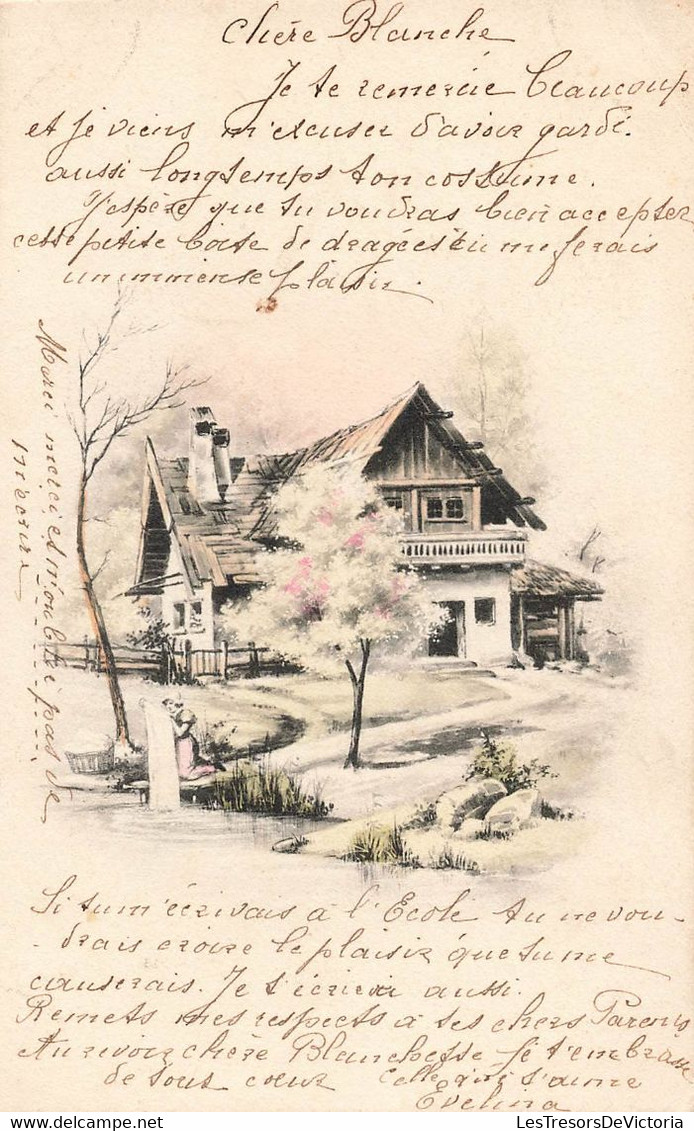 Chère Blanche
Je te remercie beaucoup
et je viens m'excuser d'avoir gardé.
aussi longtemps ton costume.
J'espère que tu voudras bien accepter
cette petite boite de dragées tu me ferais
un immense plaisir.
Merci merci et n'oublie pas de
m'écrire
Si tu m'écrivais à l'Ecole tu ne vou-
-drais croire le plaisir que tu me
causerais. Je t'écrirai aussi.
Remets mes respects à tes chers Parents
Au revoir chère Blanchette je t'embrasse
de tout coeur celle qui t'aime
Evelina
LesTresorsDeVictoria
LesTresorsDeVictoria.com